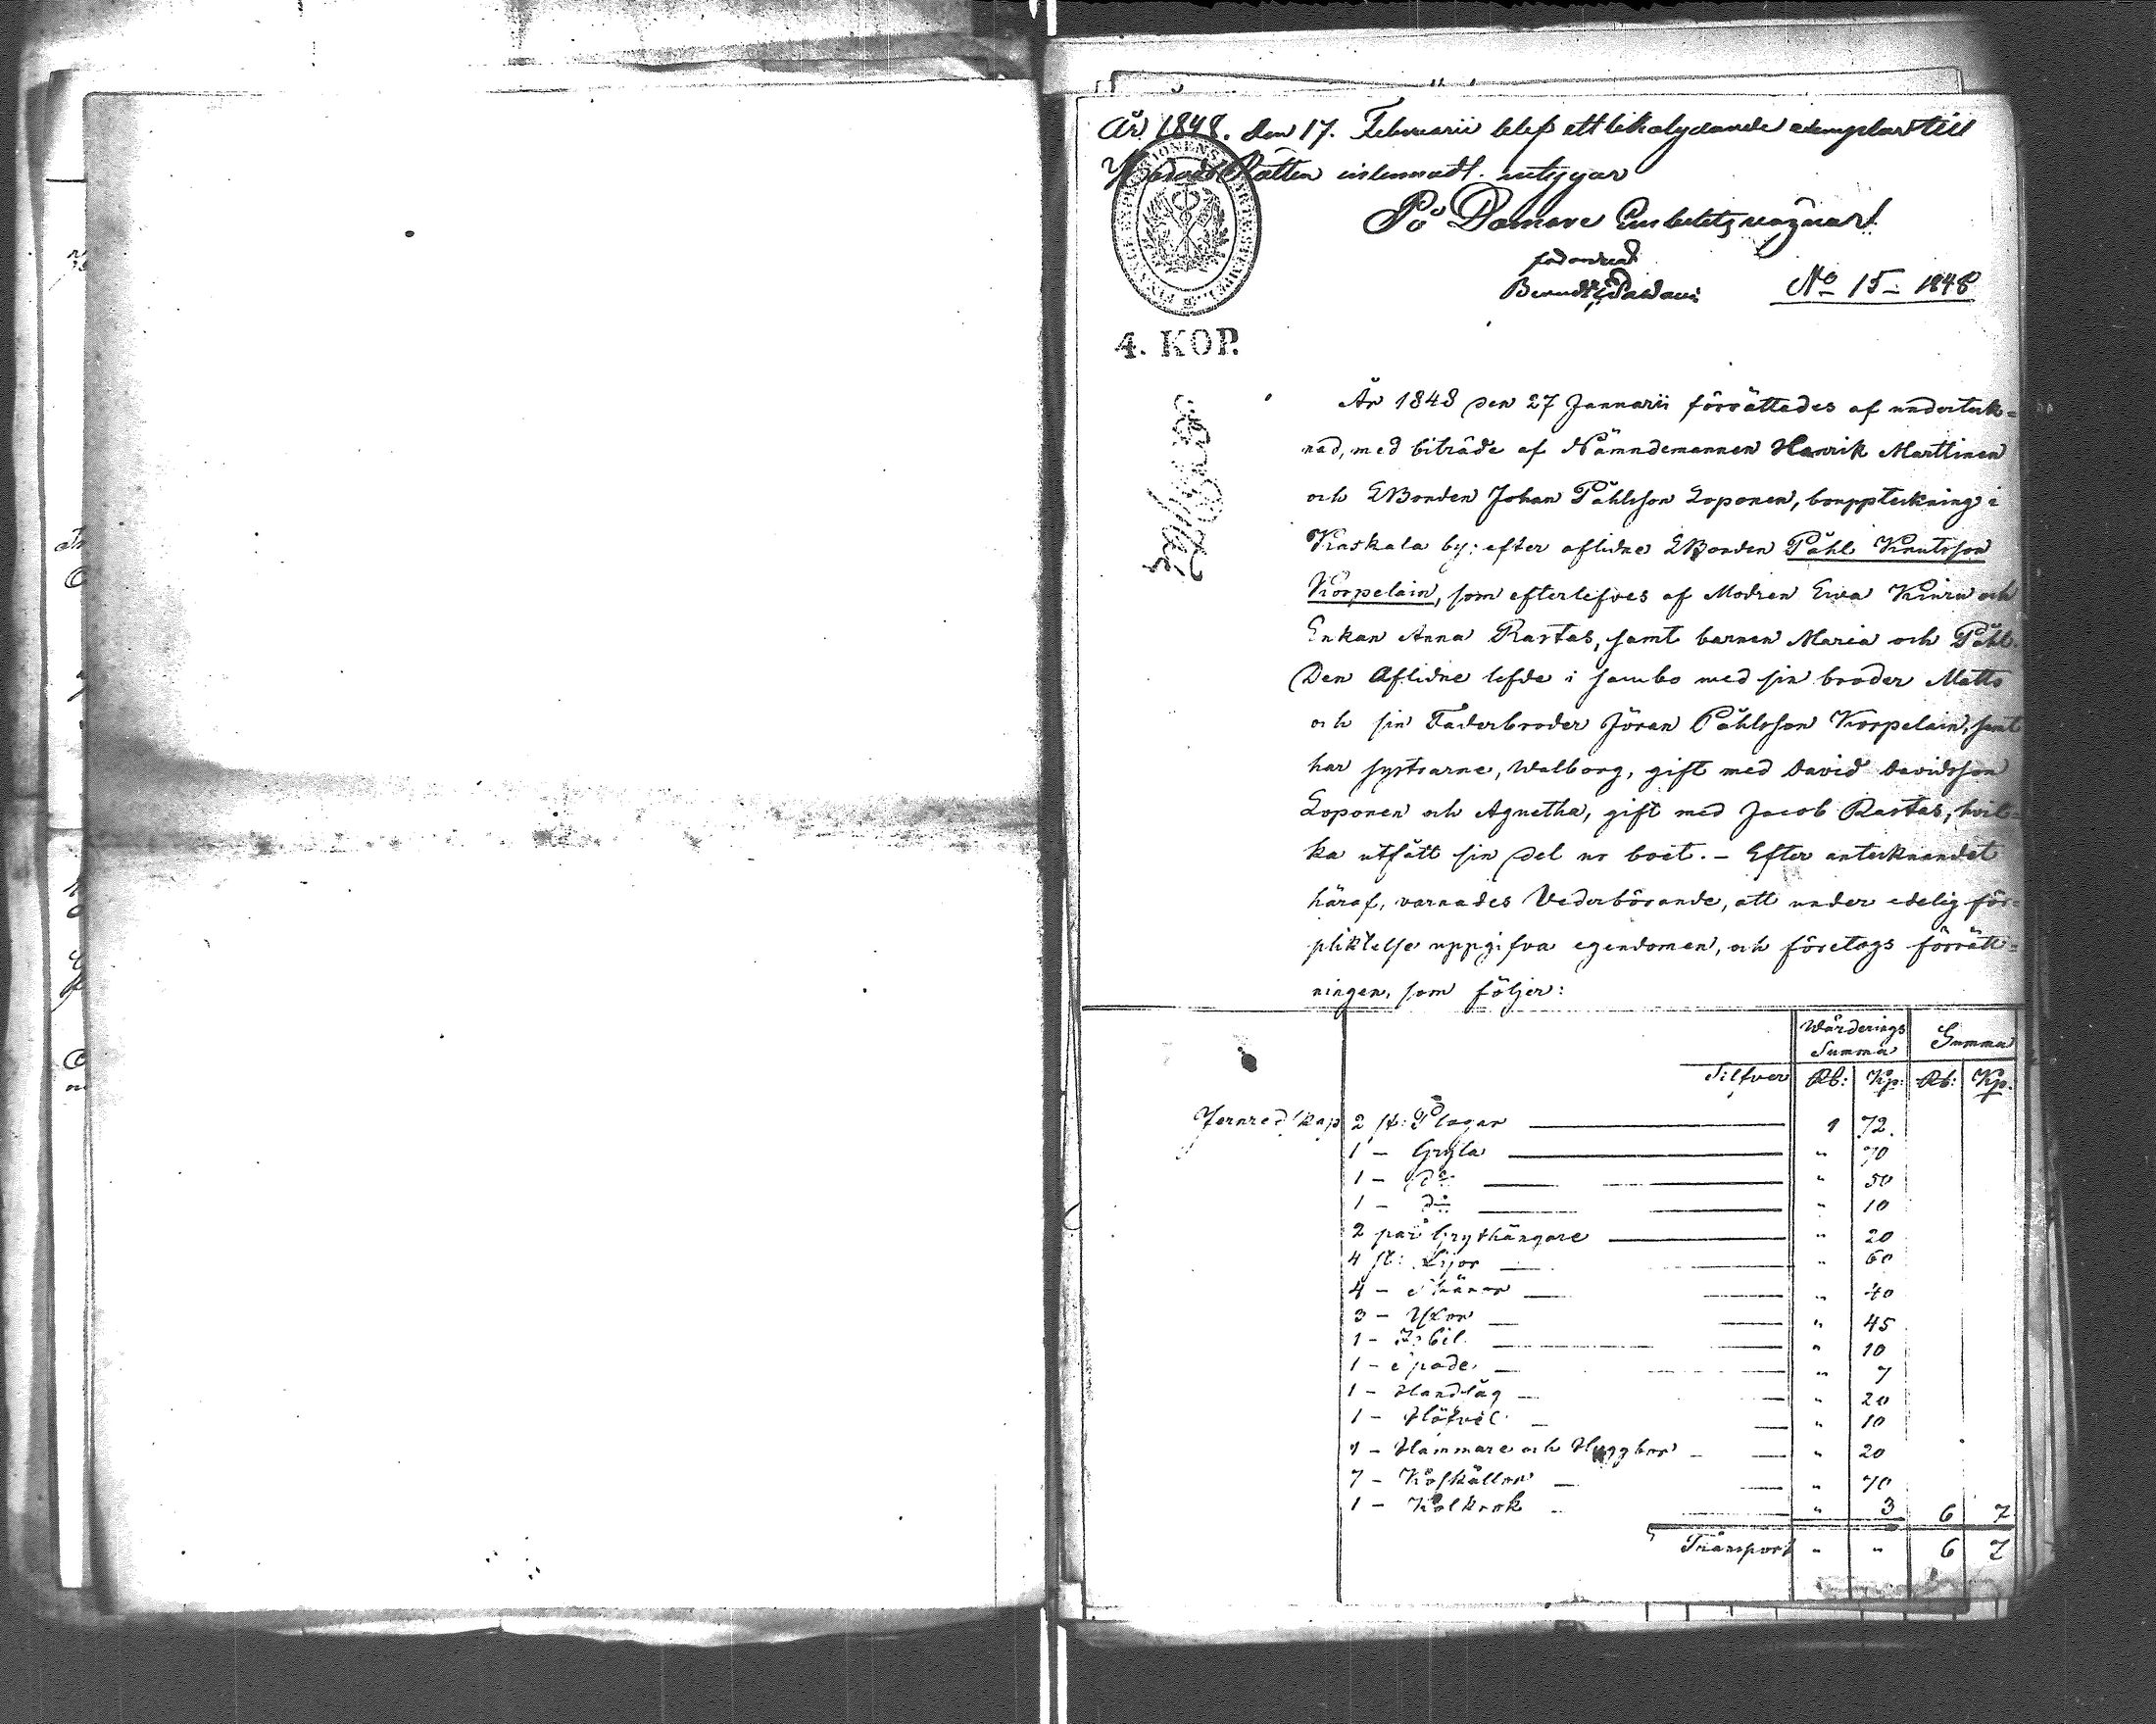 År 1848. den 17. Februarii blef ett likalydande exemplar till
Härads Rätten inlemnadt. intygar
På Domare Embetets vägnar
№ 15 - 1848
4. KOP.
År 1848 den 27 Januarii förrättades af underteck=
nad, med biträde af Nämndemannen Henrik Marttinen
och EBonden Johan Påhlsson Loponen, bouppteckning i
Kaskala by; efter aflidne EBonden Påhl Knutsson
Korpelain, som efterlefves af Modren Ewa Kinru och
Enkan Anna Rastas, samt barnen Maria och Påhl.
Den Aflidne lefde i sambo med sin broder Matts
och sin Faderbroder Jöran Påhlsson Korpelain, samt
har systrarne, Walborg, gift med David Davidsson
Loponen och Agnetha, gift med Jacob Rastas, hvil=
ka utfått sin del ur boet. - Efter antecknandet
häraf, varnades Vederbörande, att under edelig för=
pliktelse uppgifva egendomen, och företogs förrätt=
ningen, som följer:
Wärderings Summa Summa
Silfver Rb: Kp: Rb: Kp.
Jernredskap 2 st: Plogar 1 72.
1 - Gryta " 70
1 - do " 50
1 - do " 10
2 par Grythängare " 20
4 st: Lijor " 60
4 - Skäror " 40
3 - Yxor " 45
1 - Isbil " 10
1 - Spade " 7
1 - Handsåg " 20
1 - Höfvel " 10
1 - Hammare och Huggbor " 20
7 - Koskällor " 70
1 - Kolkrok " 3 6 7
Transport " " 6 7